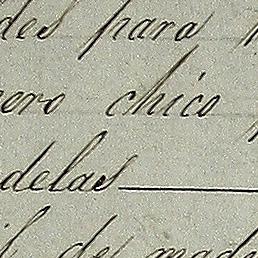 des para
ero chico
delas
de made